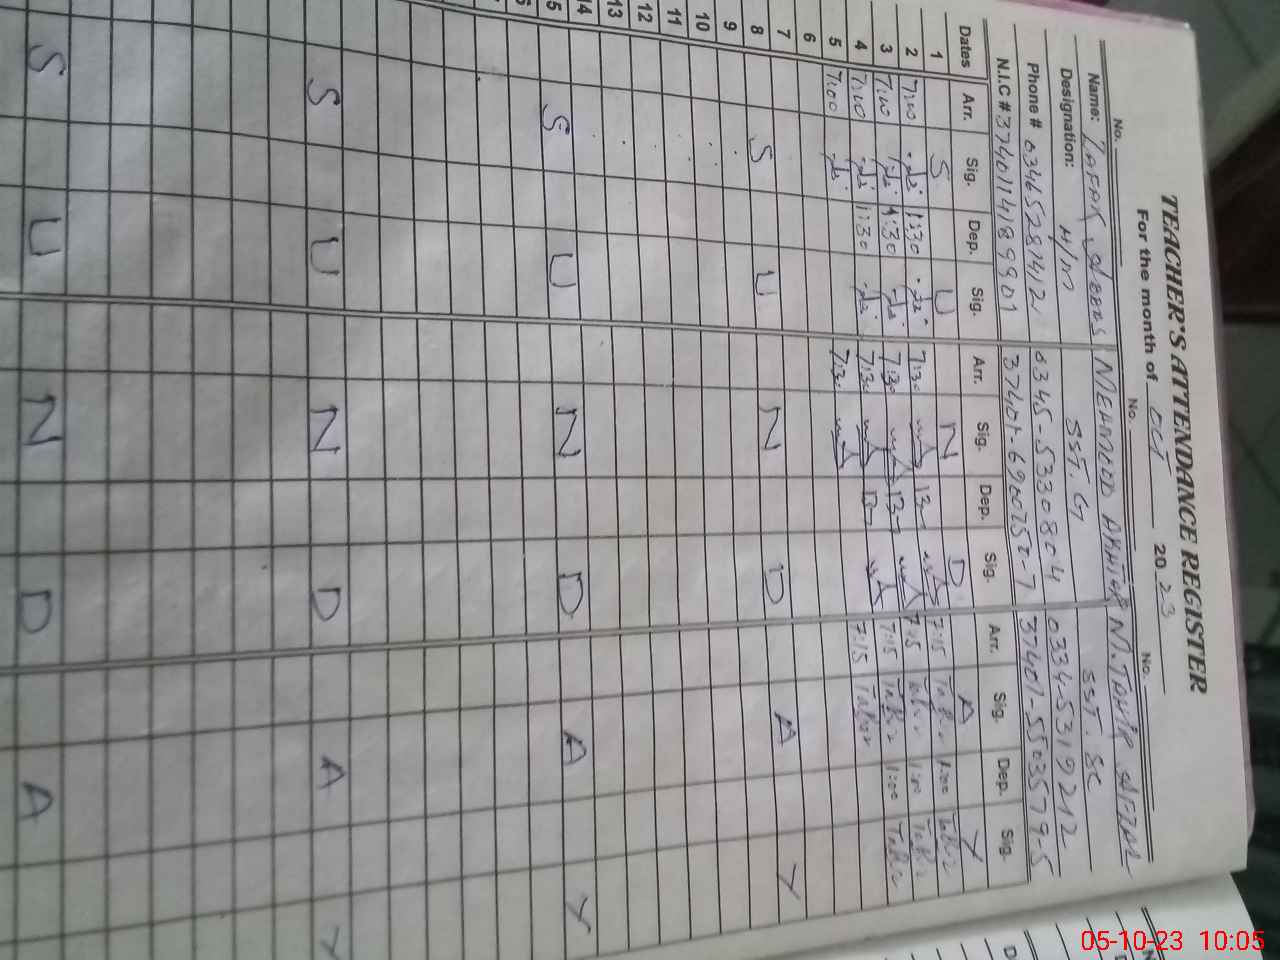 TEACHER'S ATTENDANCE REGISTER
For the month of OCT 2023
No. No. No.
Name: ZAFAR MEHMOOD AKHTER M. TAHIR AFZAL
Designation: H/M SST. G SST. SC
Phone # 03465281412 0345-5330804 0334-5319212
N.I.C # 3740114189901 37401-6900752-7 37401-5503579-5
Dates Arr. Sig. Dep. Sig. Arr. Sig. Dep. Sig. Arr. Sig. Dep. Sig.
1 S U N D A Y
2 7:00 1:30 7:30 7:15 Tahir 1:00 Tahir
3 7:00 1:30 7:30 7:15 Tahir 1:00 Tahir
4 7:00 1:30 7:30 7:15 Tahir 1:00 Tahir
5 7:00 7:30 7:15 Tahir
6
7
8 S U N D A Y
9
10
11
12
13
14
5 S U N D A Y
6
S U N D A Y
S U N D A
05-10-23 10:05